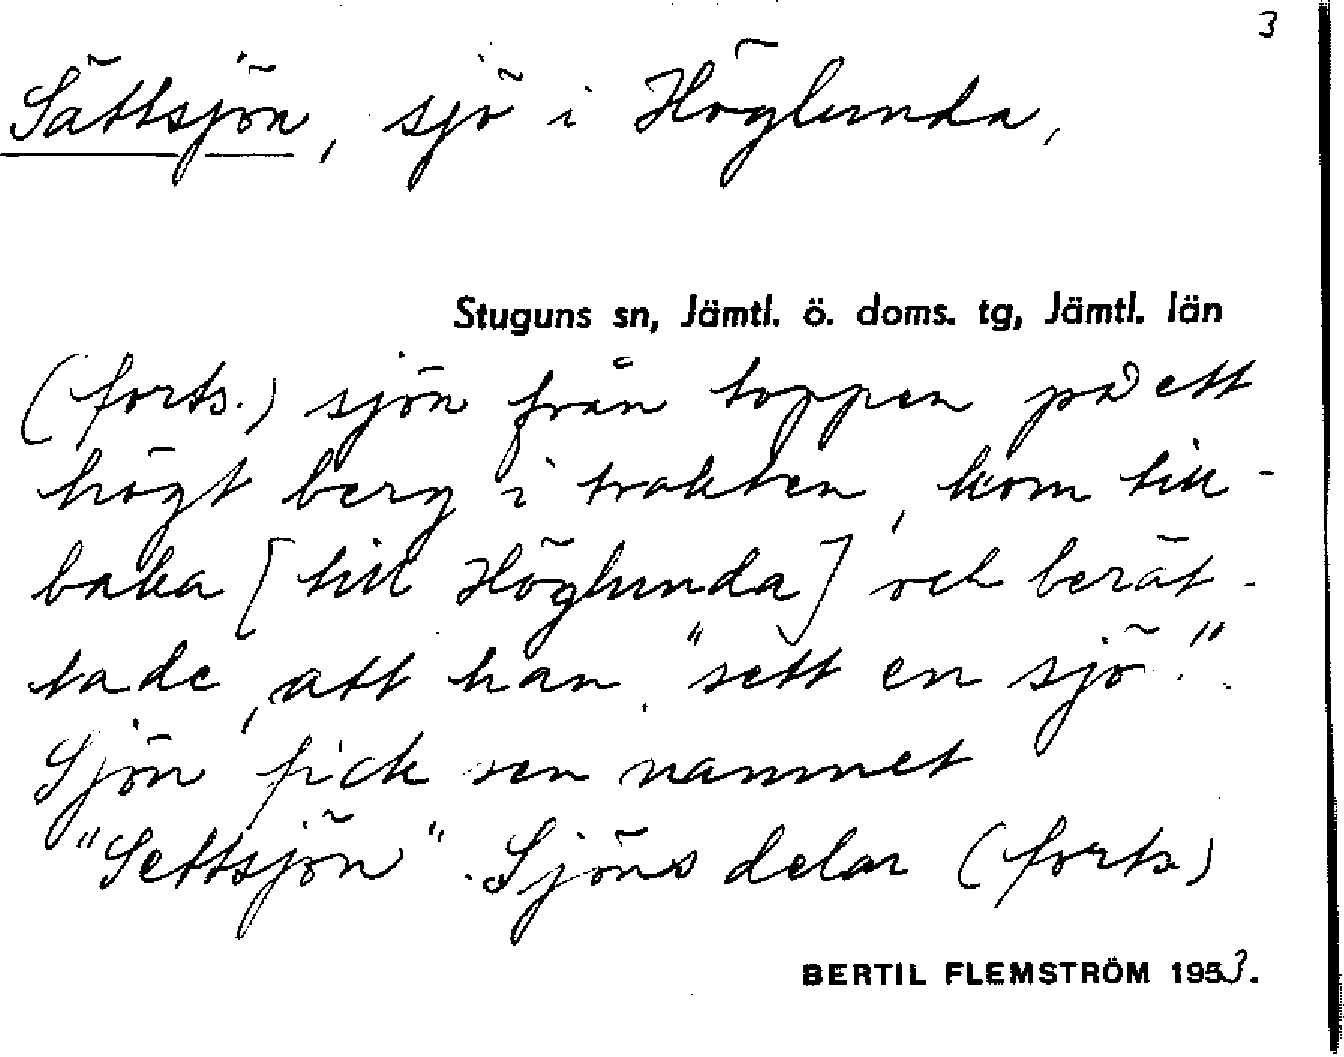 3
Sättsjön, sjö i Höglunda,
Stuguns sn, Jämtl. ö. doms. tg, Jämtl. län
(forts.) sjön från toppen på ett
högt berg i trakten, kom till-
baka [till Höglunda] och berät-
tade, att han "sett en sjö".
Sjön fick sen namnet
"Settsjön". Sjöns delar (forts)
BERTIL FLEMSTRÖM 1953.